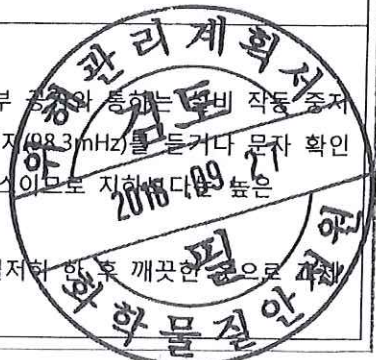 부 공기와 통하는 설비 작동 중지
지(98.3mHz)를 듣거나 문자 확인
스이므로 지하보다는 높은
철저히 한 후 깨끗한 물으로
위해관리계획서
검토
2018 .09. 27
필
화학물질안전원